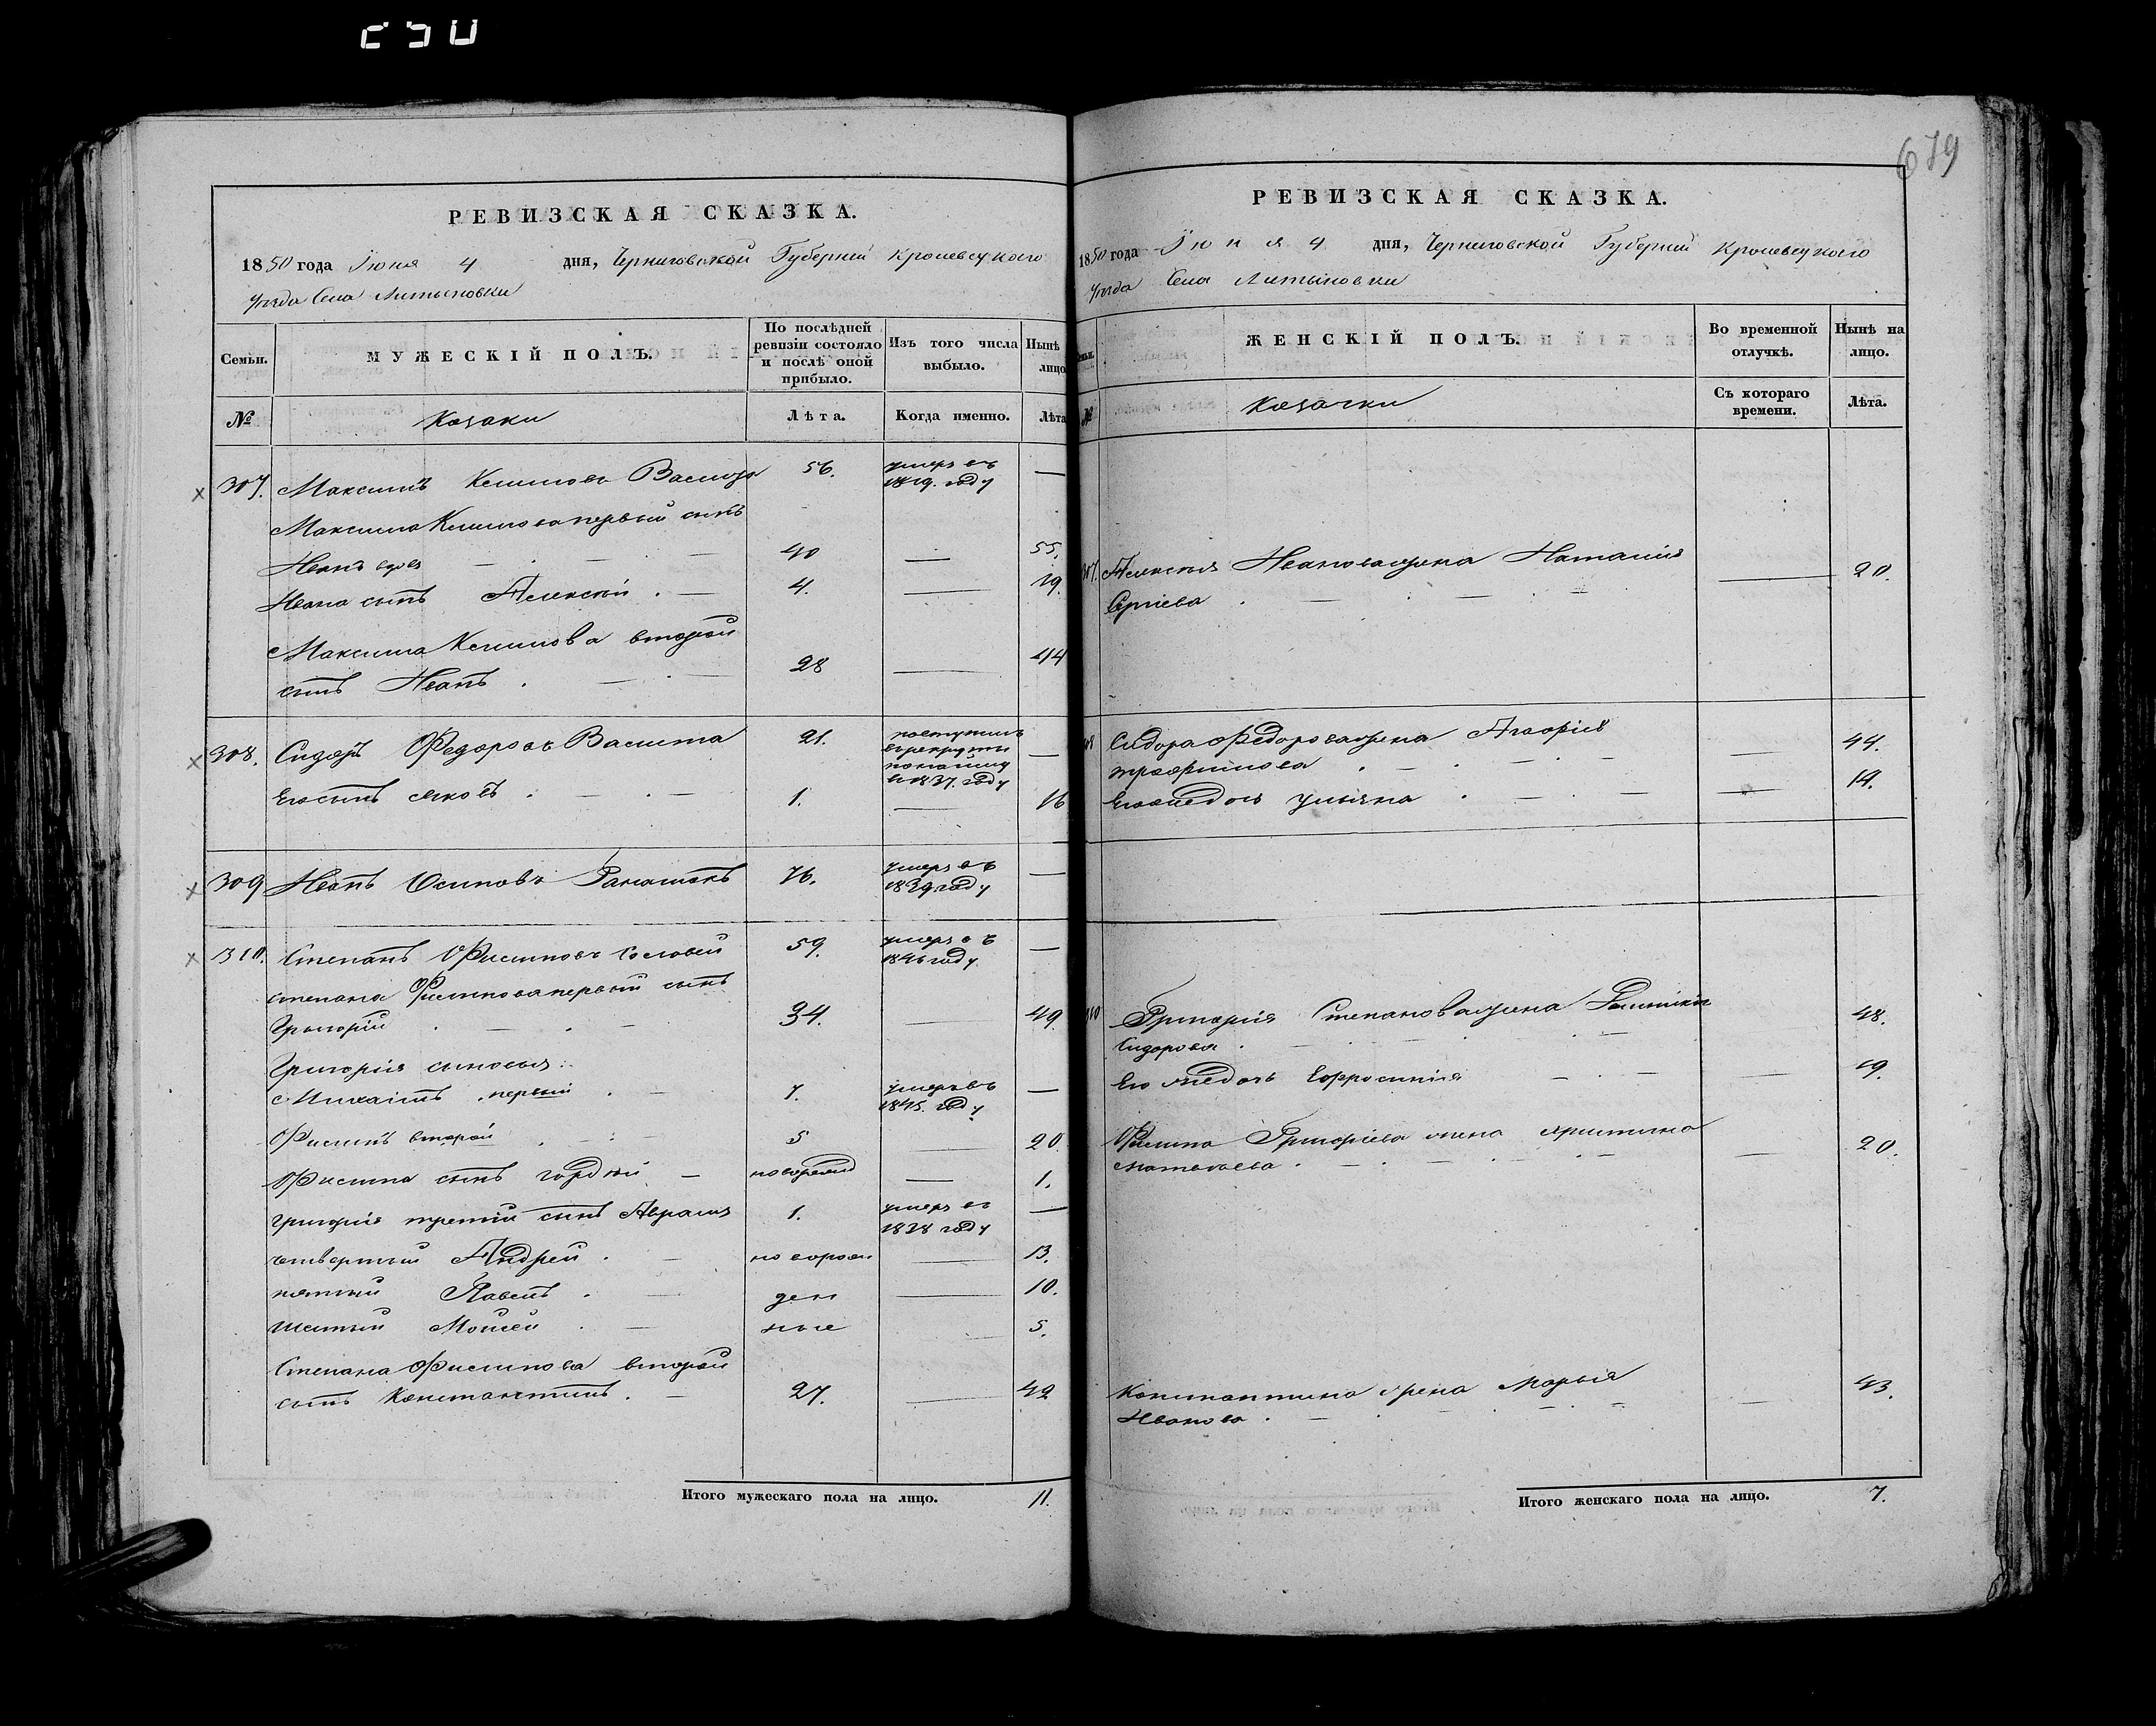 679
РЕВИЗСКАЯ СКАЗКА.
1850 года Іюня 4 дня, Черниговской Губерніи Кролевецкаго
уѣзда Села Литвиновки
Семьи. МУЖЕСКІЙ ПОЛЪ. По послѣдней ревизіи состояло и послѣ оной прибыло. Изъ того числа выбыло. Нынѣ лицо
№ Козаки Лѣта. Когда именно. Лѣта
307. Максимъ Климовъ 56. умеръ въ 1849. году —
Максима Климова первый сынъ
Иванъ 40 — 55.
Ивана сынъ Алексѣй 4. — 19.
Максима Климова второй
сынъ Иванъ 28 — 44
308. Сидоръ Федоровъ Васюта 21. поступилъ въ рекруты по найму въ 1837. году —
Его сынъ Яковъ 1. — 16
309 Иванъ Осиповъ 76. умеръ въ 1839 году —
310. Степанъ Филиповъ Соловей 59. умеръ въ 1846 году —
Степана Филипова первый сынъ
Григорій 34. — 49.
Григорія сыновья:
Михаилъ первый 7. умеръ въ 1845. году —
Филипъ второй 5 — 20.
Филипа сынъ Гордѣй — новорожд — 1.
Григорія третій сынъ Аврамъ 1. умеръ въ 1838 году —
четвертый Андрей новорож — 13.
пятый Павелъ ден — 10.
шестый Мойсей ные 5.
Степана Филипова второй
сынъ Константинъ 27. — 42
Итого мужескаго пола на лицо. 11.
РЕВИЗСКАЯ СКАЗКА.
1850 года Іюня 4 дня, Черниговской Губерніи Кролевецкаго
уѣзда Села Литвиновки
ЖЕНСКІЙ ПОЛЪ. Во временной отлучкѣ. Нынѣ на лицо.
№ Козачки Съ котораго времени. Лѣта.
307. Алексѣя Иванова жена Наталія — 20.
Сергіева
Сидора Федорова жена Агафія — 44.
Трофимова
Его дочь Ульяна — 14.
310 Григорія Степанова жена 48.
Сидорова
Его дочь Ефросинія — 19.
Филипа Григоріева жена Христина — 20.
Матвѣева
Константина жена Марья — 43.
Иванова
Итого женскаго пола на лицо. 7.